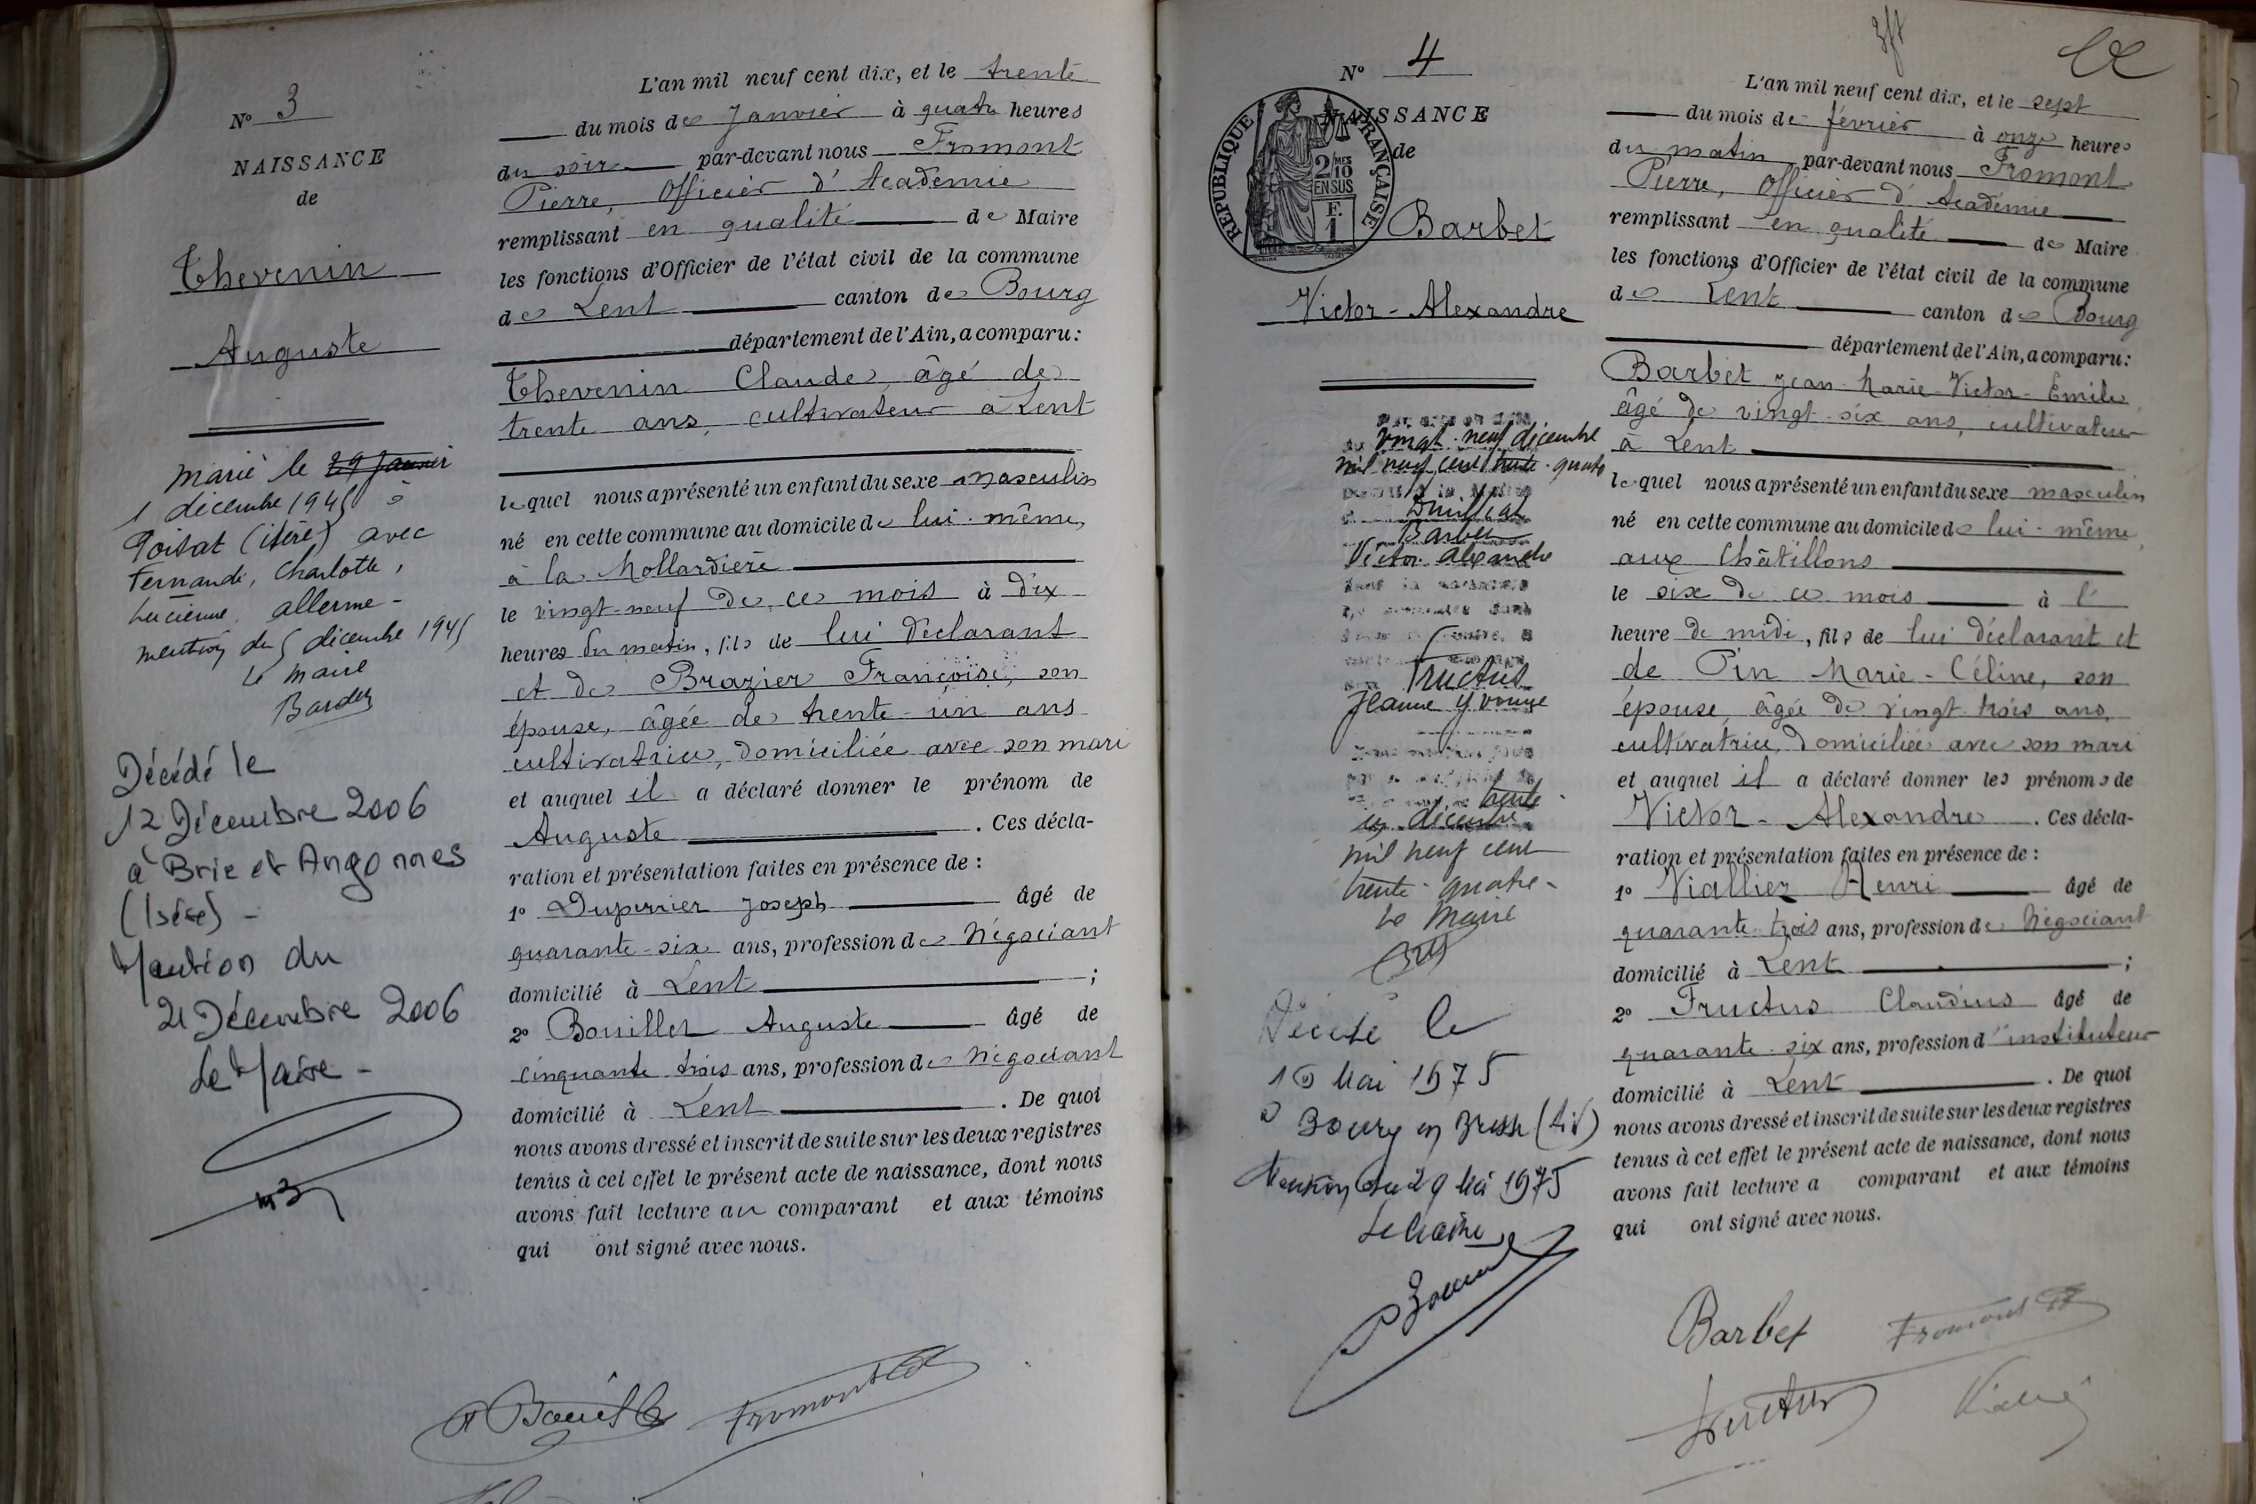 N° 3
NAISSANCE
de
Thevenin
Auguste
marié le 29 Janvier
1 décembre 1945 à
Poisat (isère) avec
Fernande, Charlotte,
Lucienne allerme -
mention du 5 décembre 1945
le maire
Décédé le
12 Décembre 2006
à Brie et Angonnes
(Isère) -
Mention du
21 Décembre 2006
Le Maire -
L'an mil neuf cent dix, et le trente
du mois de Janvier à quatre heures
du soir par-devant nous Fromont
Pierre, Officier d'Académie
remplissant en qualité de Maire
les fonctions d'Officier de l'état civil de la commune
de Lent canton de Bourg
département de l'Ain, a comparu:
Thevenin Claude, âgé de
trente ans, cultivateur à Lent
lequel nous a présenté un enfant du sexe masculin
né en cette commune au domicile de lui-même,
à la Mollardière
le vingt-neuf de ce mois à dix
heures du matin, fils de lui déclarant
et de Brazier Françoise, son
épouse, âgée de trente-un ans
cultivatrice, domiciliée avec son mari
et auquel il a déclaré donner le prénom de
Auguste. Ces décla-
ration et présentation faites en présence de :
1° Duperrier Joseph âgé de
quarante-six ans, profession de Négociant
domicilié à Lent ;
2° Bouillet Auguste âgé de
cinquante trois ans, profession de Négociant
domicilié à Lent. De quoi
nous avons dressé et inscrit de suite sur les deux registres
tenus à cet effet le présent acte de naissance, dont nous
avons fait lecture au comparant et aux témoins
qui ont signé avec nous.
Fromont
N° 4
NAISSANCE
de
RÉPUBLIQUE FRANÇAISE
2/10
EN SUS
F.
1
Barbet
Victor-Alexandre
vingt-neuf décembre
mil neuf cent trente-quatre
Barbet
Victor alexandre
Fructus
Jeanne Yvonne
trente
un décembre
mil neuf cent
trente-quatre-
Le Maire
Décédé le
10 Mai 1975
à Bourg en Bresse (Ain)
Mention du 29 Mai 1975
Le Maire
L'an mil neuf cent dix, et le sept
du mois de février à onze heures
du matin par-devant nous Fromont
Pierre, Officier d'Académie
remplissant en qualité de Maire
les fonctions d'Officier de l'état civil de la commune
de Lent canton de Bourg
département de l'Ain, a comparu:
Barbet Jean-Marie-Victor-Emile
âgé de vingt-six ans, cultivateur
à Lent
lequel nous a présenté un enfant du sexe masculin
né en cette commune au domicile de lui-même,
aux Châtillons
le six de ce mois à l'
heure de midi, fils de lui déclarant et
de Pin Marie-Céline, son
épouse, âgée de vingt-trois ans,
cultivatrice, domiciliée avec son mari
et auquel il a déclaré donner les prénoms de
Victor-Alexandre. Ces décla-
ration et présentation faites en présence de :
1° Viallier Henri âgé de
quarante-trois ans, profession de Négociant
domicilié à Lent ;
2° Fructus Claudius âgé de
quarante-six ans, profession d'instituteur
domicilié à Lent. De quoi
nous avons dressé et inscrit de suite sur les deux registres
tenus à cet effet le présent acte de naissance, dont nous
avons fait lecture a comparant et aux témoins
qui ont signé avec nous.
Barbet Fromont
Fructus